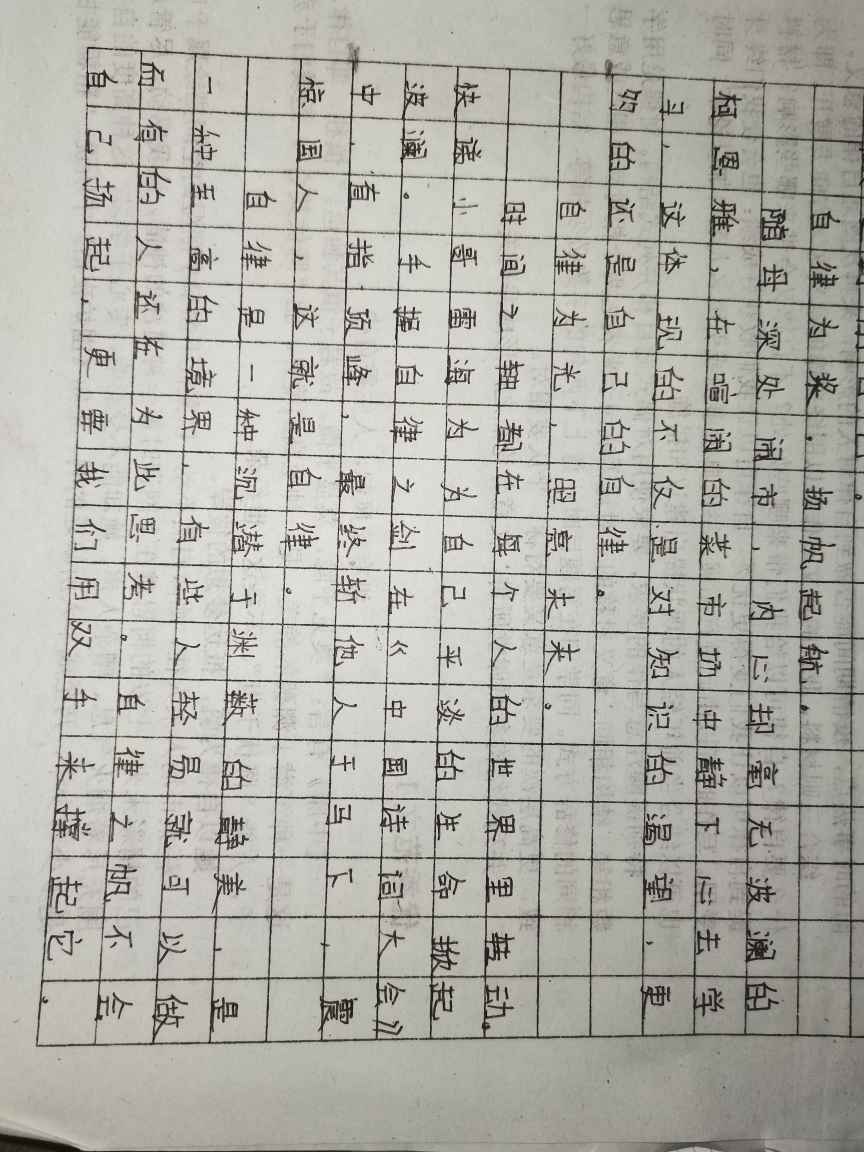 自律为桨，扬帆起航。
母深处闹市，内心却毫无波澜的
柯恩雅，在喧闹的菜市场中静下心去学
习，这体现的不仅是对知识的渴望，更
的还是自己的自律。
自律为光，照亮未来。
时间之轴都在每个人的世界里转动。
快递小哥雷海为为自己平淡的生命掀起
波澜。手握自律之剑在《中国诗词大会》
中，直指顶峰，最终斩他人于马下，震
惊国人，这就是自律。
自律是一种沉潜于渊薮的静美，是
一种至高的境界，有些人轻易就可以做
而有的人还在为此思考。自律之帆不会
自己扬起，更要我们用双手来撑起它。